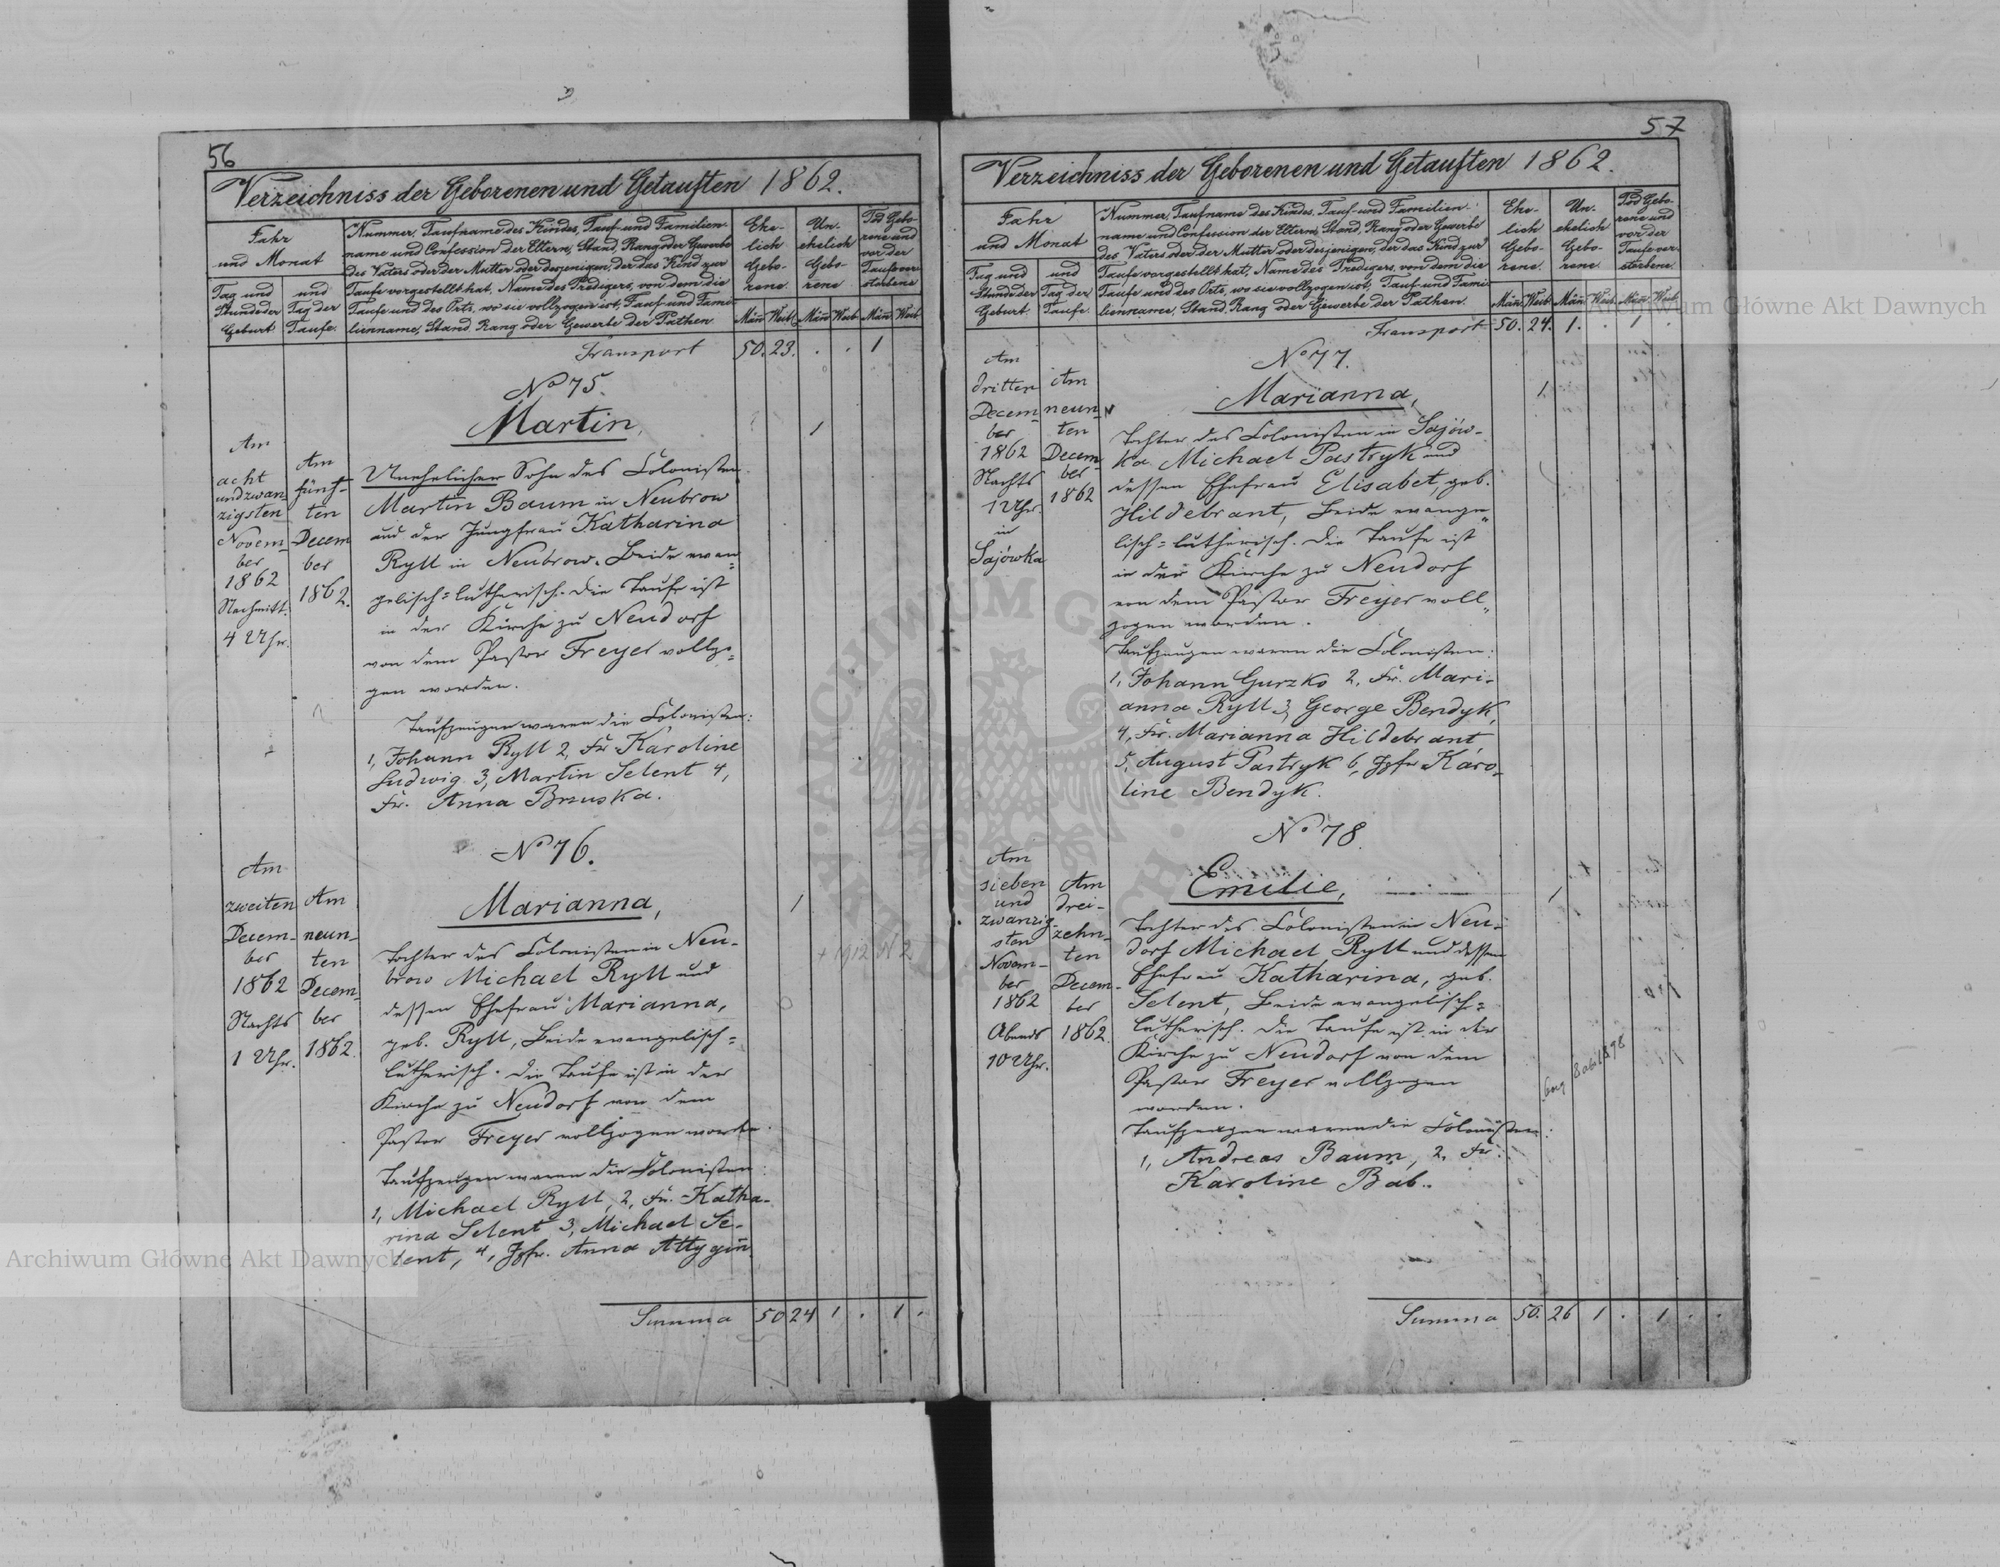 56
Verzeichniss der Geborenen und Getauften 1862.
Jahr
und Monat
Tag und
Stunde der
Geburt
und
Tag der
Taufe.
Nummer, Taufname des Kindes, Tauf- und Familien-
name und Confession der Eltern, Stand, Rang oder Gewerbe
des Vaters oder der Mutter oder desjenigen, der das Kind zur
Taufe vorgestellt hat, Name des Predigers, von dem die
Taufe und des Orts, wo sie vollzogen ist, Tauf- und Fami-
lienname, Stand, Rang oder Gewerbe der Pathen.
Ehe-
lich
Gebo-
rene.
Un-
ehelich
Gebo-
rene
Tod Gebo-
rene und
vor der
Taufe ver-
storbene
Män̄ Weib. Män̄ Weib. Män̄ Weib.
Transport 50. 23. . . 1
No 75.
Martin, 1
Am
acht
und zwan
zigsten
Novem-
ber
1862
Nachmitt.
4 Uhr.
Am
fünf-
ten
Decem
ber
1862.
Unehelicher Sohn des Colonisten
Martin Baum in Neubrow
und der Jungfrau Katharina
Rytt in Neubrow. Beide evan=
gelisch=lutherisch. Die Taufe ist
in der Kirche zu Neudorf
von dem Pastor Freyer vollzo=
gen worden.
Taufzeugen waren die Colonisten:
1, Johann Rytt 2, Fr. Karoline
Ludwig 3, Martin Selent 4,
Fr. Anna Bruska.
No 76.
Marianna, 1
Am
zweiten
Decem-
ber
1862
Nachts
1 Uhr.
Am
neun-
ten
Decem-
ber
1862.
Tochter des Colonisten in Neu-
brow Michael Rytt und
dessen Ehefrau Marianna,
geb. Rytt, Beide evangelisch=
lutherisch. Die Taufe ist in der
Kirche zu Neudorf von dem
Pastor Freyer vollzogen worden.
Taufzeugen waren die Colonisten:
1, Michael Rytt, 2, Fr. Katha-
rina Selent 3, Michael Se-
lent, 4, Jgfr. Anna
+ 1912 N 2
Summa 50 24 1 . 1 .
57
Verzeichniss der Geborenen und Getauften 1862.
Jahr
und Monat
Tag und
Stunde der
Geburt
und
Tag der
Taufe.
Nummer, Taufname des Kindes, Tauf- und Familien-
name und Confession der Eltern, Stand, Rang oder Gewerbe
des Vaters oder der Mutter oder desjenigen, der das Kind zur
Taufe vorgestellt hat, Name des Predigers, von dem die
Taufe und des Orts, wo sie vollzogen ist, Tauf- und Fami-
lienname, Stand, Rang oder Gewerbe der Pathen.
Ehe-
lich
Gebo-
rene.
Un-
ehelich
Gebo-
rene.
Tod Gebo-
rene und
vor der
Taufe ver-
storbene.
Män̄ Weib Män̄ Weib. Män̄ Weib.
Transport 50. 24. 1. . 1 .
No 77.
Marianna, 1.
Am
dritten
Decem-
ber
1862
Nachts
1 Uhr.
in
Sajówka
Am
neun-
ten
Decem-
ber
1862
Tochter des Colonisten in Sajów-
ka Michael Pastryk und
dessen Ehefrau Elisabet, geb.
Hildebrant, Beide evange=
lisch=lutherisch. Die Taufe ist
in der Kirche zu Neudorf
von dem Pastor Freyer voll=
zogen worden.
Taufzeugen waren die Colonisten:
1, Johann Gurzko 2, Fr. Mari-
anna Rytt 3, George Bendyk,
4, Fr. Marianna Hildebrant
5, August Pastryk 6, Jgfr Karo-
line Bendyk.
No 78.
Emilie, 1
Am
sieben
und
zwanzig-
sten
Novem-
ber
1862
Abends
10 Uhr.
Am
drei-
zehn-
ten
Decem-
ber
1862.
Tochter des Colonisten in Neu-
dorf Michael Rytt und dessen
Ehefrau Katharina, geb.
Selent, Beide evangelisch=
lutherisch. Die Taufe ist in der
Kirche zu Neudorf von dem
Pastor Freyer vollzogen
worden.
Taufzeugen waren die Colonisten:
1, Andreas Baum, 2, Fr.
Karoline Bab.
1898
Summa 50. 26 1 . 1 . .
Archiwum Główne Akt Dawnych
Archiwum Główne Akt Dawnych